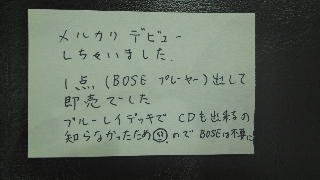 メルカリ デビュー
しちゃいました.
1点 (BOSE プレーヤー) 出して
即売でーした
ブルーレイデッキで CDも出来るの
知らなかったため ので BOSEは不要に